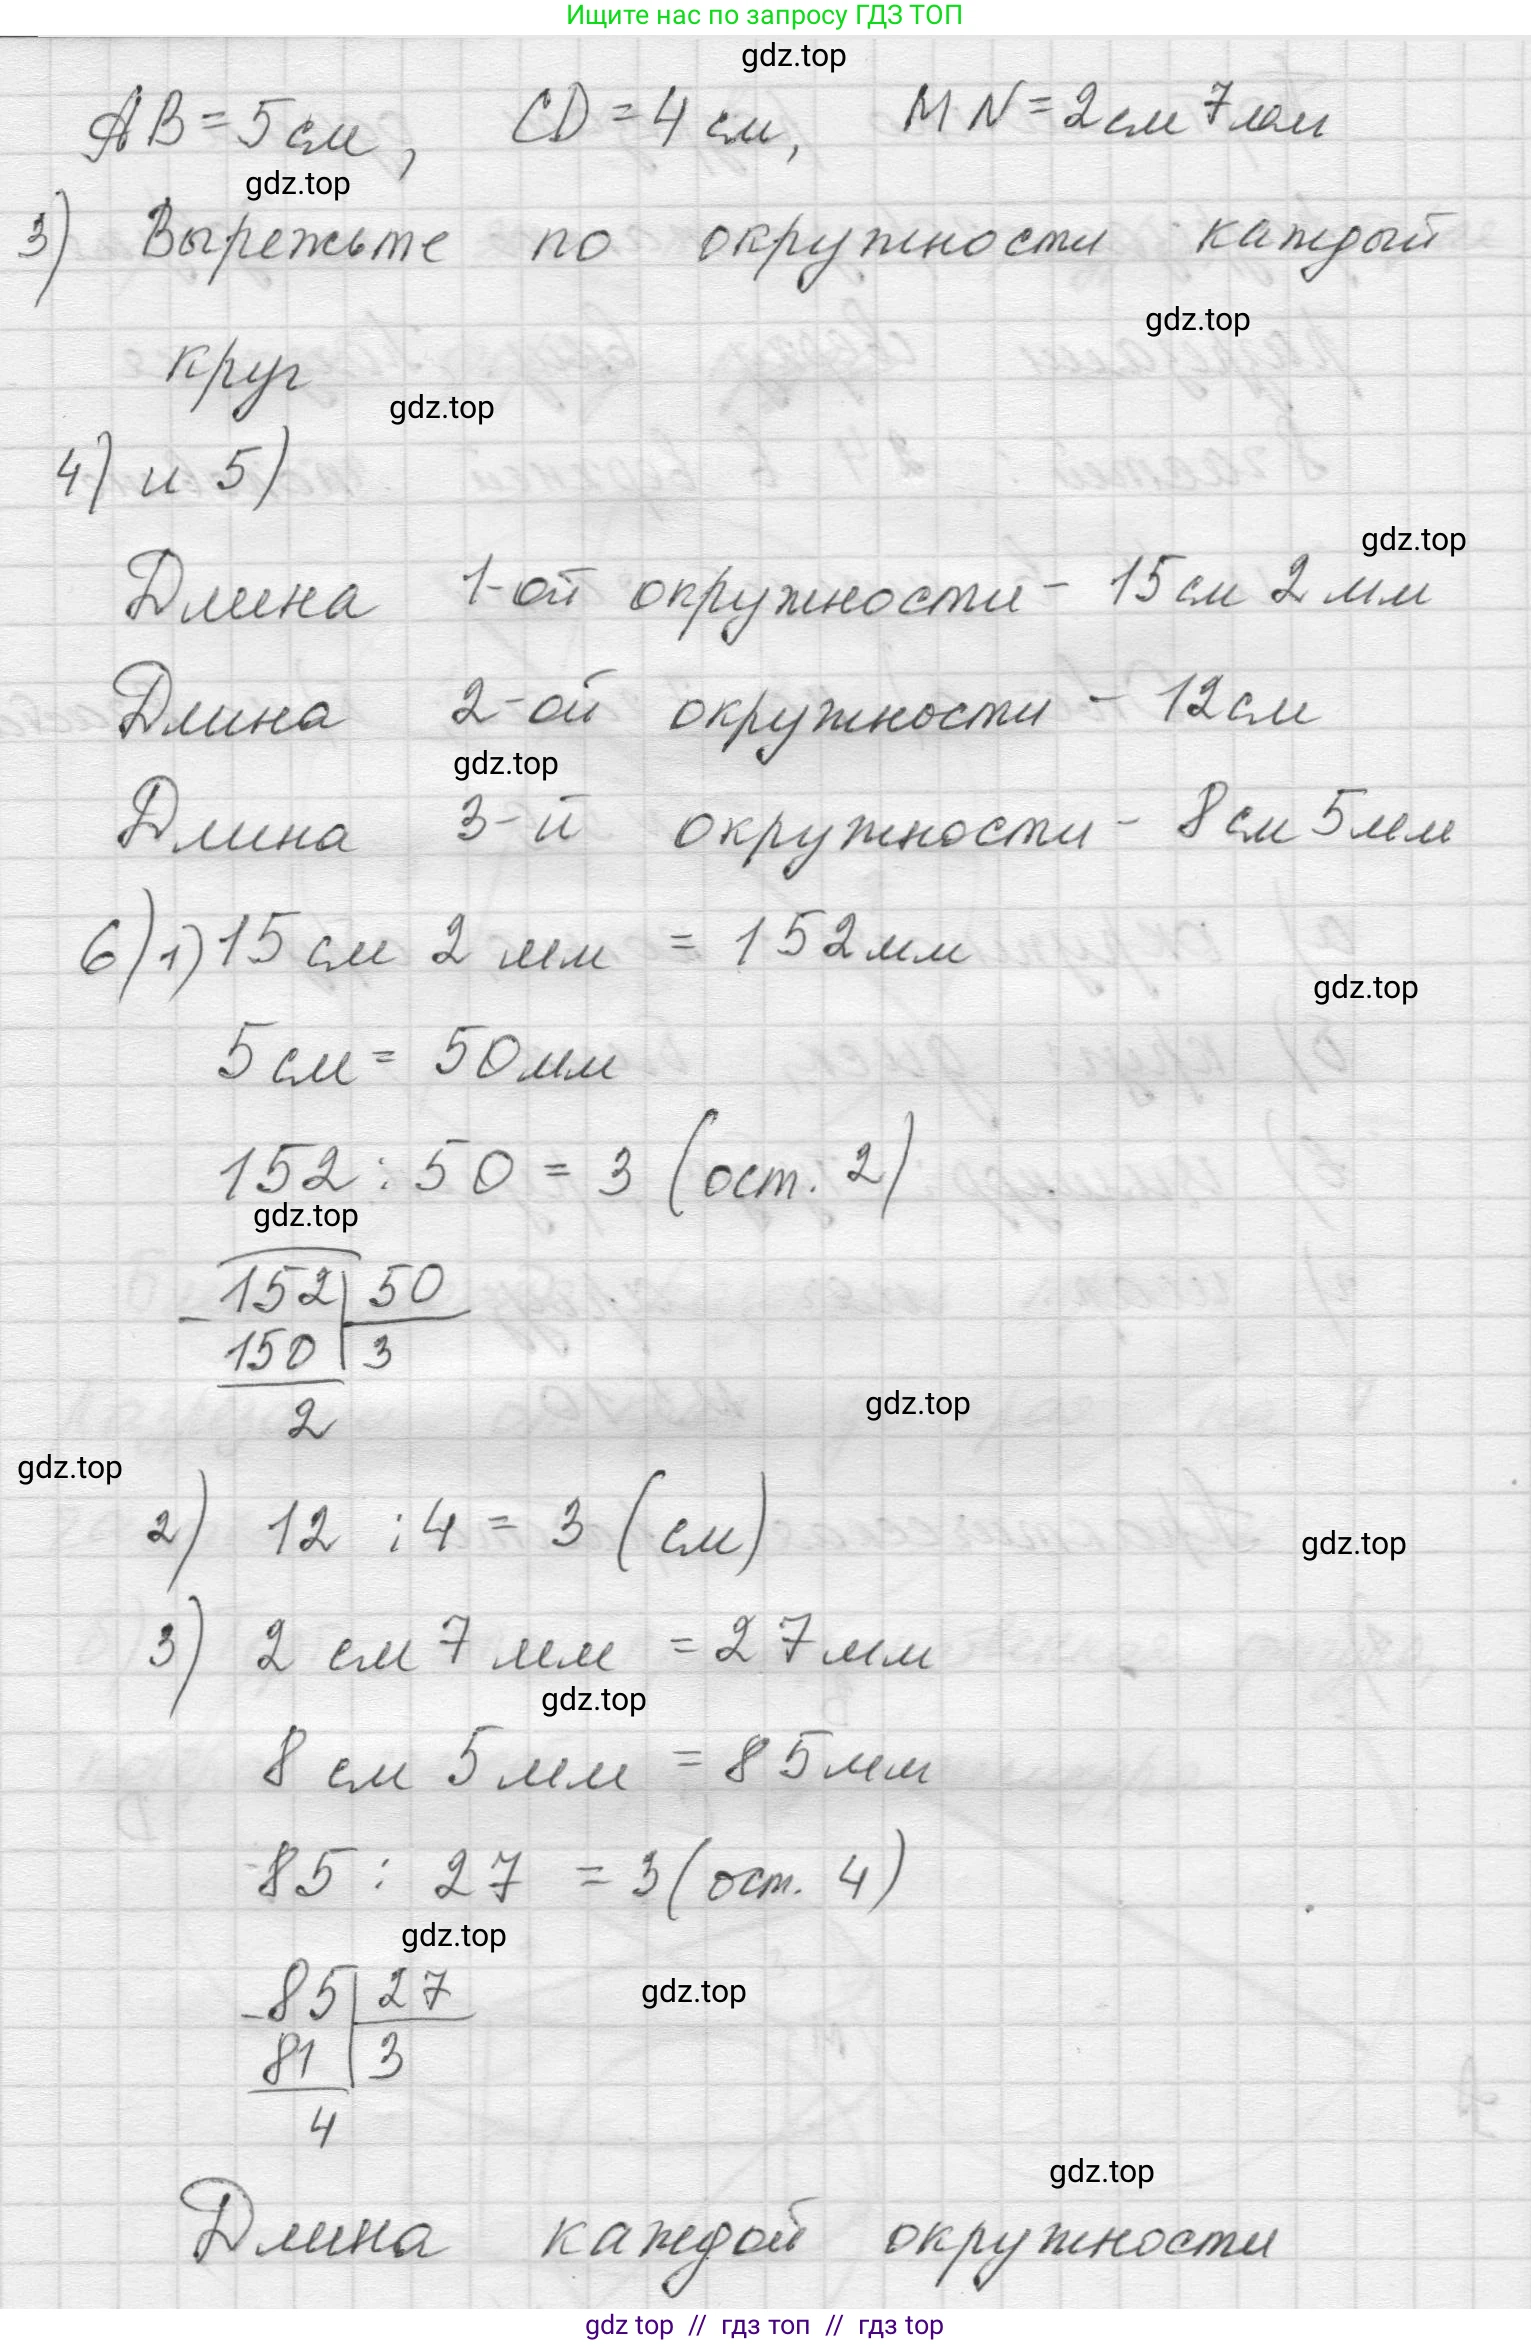 Ищите нас по запросу ГДЗ ТОП
gdz.top
AB = 5 см, CD = 4 см, MN = 2 см 7 мм
gdz.top
3) Вырежьте по окружности каждый
gdz.top
круг
gdz.top
4) и 5)
gdz.top
Длина 1-ой окружности - 15 см 2 мм
Длина 2-ой окружности - 12 см
gdz.top
Длина 3-й окружности - 8 см 5 мм
6) 1) 15 см 2 мм = 152 мм
gdz.top
5 см = 50 мм
152 : 50 = 3 (ост. 2)
gdz.top
- 152 | 50
150 | 3
2
gdz.top
gdz.top
2) 12 : 4 = 3 (см)
gdz.top
3) 2 см 7 мм = 27 мм
gdz.top
8 см 5 мм = 85 мм
85 : 27 = 3 (ост. 4)
gdz.top
- 85 | 27
gdz.top
81 | 3
4
gdz.top
Длина каждой окружности
gdz top // гдз топ // гдз top